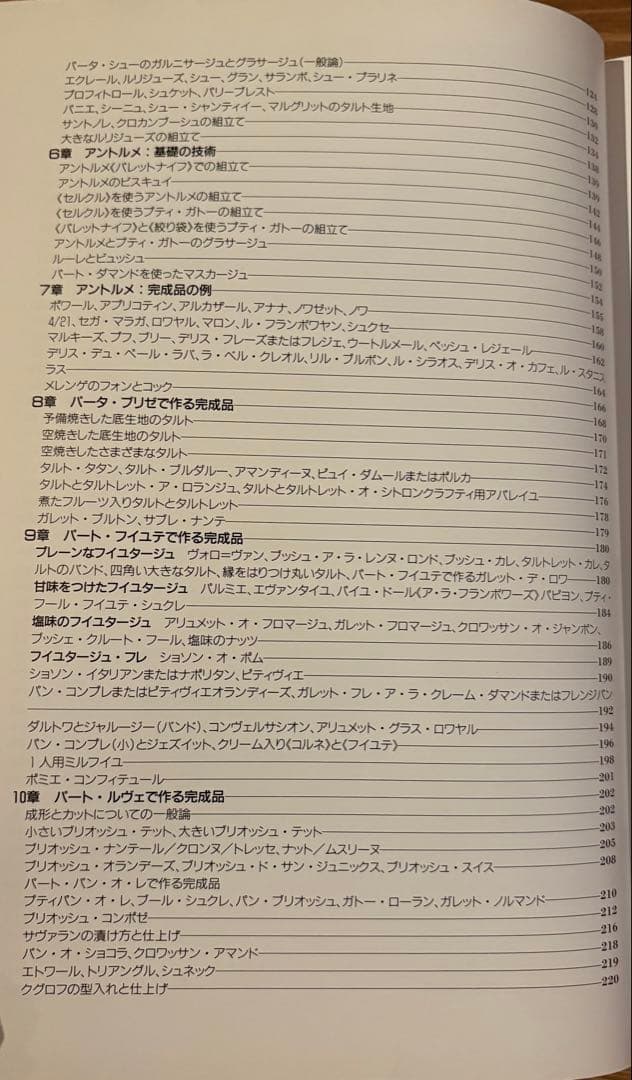 パータ・シューのガルニサージュとグラサージュ(一般論) 124
エクレール、ルリジューズ、シュー、グラン、サランボ、シュー・プラリネ 128
プロフィトロール、シュケット、パリーブレスト 130
パニエ、シーニュ、シュー・シャンティイー、マルグリットのタルト生地 132
サントノレ、クロカンブーシュの組立て 134
大きなルリジューズの組立て 138
6章 アントルメ：基礎の技術 139
アントルメ《パレットナイフ》での組立て 139
アントルメのビスキュイ 142
《セルクル》を使うアントルメの組立て 144
《セルクル》を使うプティ・ガトーの組立て 146
《パレットナイフ》と《絞り袋》を使うプティ・ガトーの組立て 148
アントルメとプティ・ガトーのグラサージュ 150
ルーレとビュッシュ 152
パート・ダマンドを使ったマスカージュ 154
7章 アントルメ：完成品の例 155
ポワール、アプリコティン、アルカザール、アナナ、ノワゼット、ノワ 158
4/21、セガ・マラガ、ロワヤル、マロン、ル・フランボワヤン、シュクセ 160
マルキーズ、プフ、ブリー、デリス・フレーズまたはフレジェ、ウートルメール、ペッシュ・レジェール 162
デリス・デュ・ペール・ラバ、ラ・ベル・クレオル、リル・ブルボン、ル・シラオス、デリス・オ・カフェ、ル・スタニス
ラス 164
メレンゲのフォンとコック 166
8章 パータ・ブリゼで作る完成品 168
予備焼きした底生地のタルト 170
空焼きした底生地のタルト 171
空焼きしたさまざまなタルト 172
タルト・タタン、タルト・ブルダルー、アマンディーヌ、ピュイ・ダムールまたはポルカ 174
タルトとタルトレット・ア・ロランジュ、タルトとタルトレット・オ・シトロンクラフティ用アパレイユ 176
煮たフルーツ入りタルトとタルトレット 178
ガレット・ブルトン、サブレ・ナンテ 179
9章 パート・フイユテで作る完成品 180
プレーンなフイユタージュ ヴォローヴァン、ブッシュ・ア・ラ・レンヌ・ロンド、ブッシュ・カレ、タルトレット・カレ、タ
ルトのバンド、四角い大きなタルト、縁をはりつけ丸いタルト、パート・フイユテで作るガレット・デ・ロワ 180
甘味をつけたフイユタージュ パルミエ、エヴァンタイユ、パイユ・ドール《ア・ラ・フランボワーズ》パピヨン、プティ・
フール・フイユテ・シュクレ 184
塩味のフイユタージュ アリュメット・オ・フロマージュ、ガレット・フロマージュ、クロワッサン・オ・ジャンボン、
ブッシェ・クルート・フール、塩味のナッツ 186
フイユタージュ・フレ ショソン・オ・ポム 189
ショソン・イタリアンまたはナポリタン、ピティヴィエ 190
パン・コンプレまたはピティヴィエオランディーズ、ガレット・フレ・ア・ラ・クレーム・ダマンドまたはフレンジパン
192
ダルトワとジャルージー(バンド)、コンヴェルサシオン、アリュメット・グラス・ロワヤル 194
パン・コンプレ(小)とジェズイット、クリーム入り《コルネ》と《フイユテ》 196
1人用ミルフイユ 198
ポミエ・コンフィテュール 201
10章 パート・ルヴェで作る完成品 202
成形とカットについての一般論 202
小さいブリオッシュ・テット、大きいブリオッシュ・テット 203
ブリオッシュ・ナンテール／クロンヌ／トレッセ、ナット／ムスリーヌ 205
ブリオッシュ・オランデーズ、ブリオッシュ・ド・サン・ジュニックス、ブリオッシュ・スイス 208
パート・パン・オ・レで作る完成品
プティパン・オ・レ、ブール・シュクレ、パン・ブリオッシュ、ガトー・ローラン、ガレット・ノルマンド 210
ブリオッシュ・コンポゼ 212
サヴァランの漬け方と仕上げ 216
パン・オ・ショコラ、クロワッサン・アマンド 218
エトワール、トリアングル、シュネック 219
クグロフの型入れと仕上げ 220